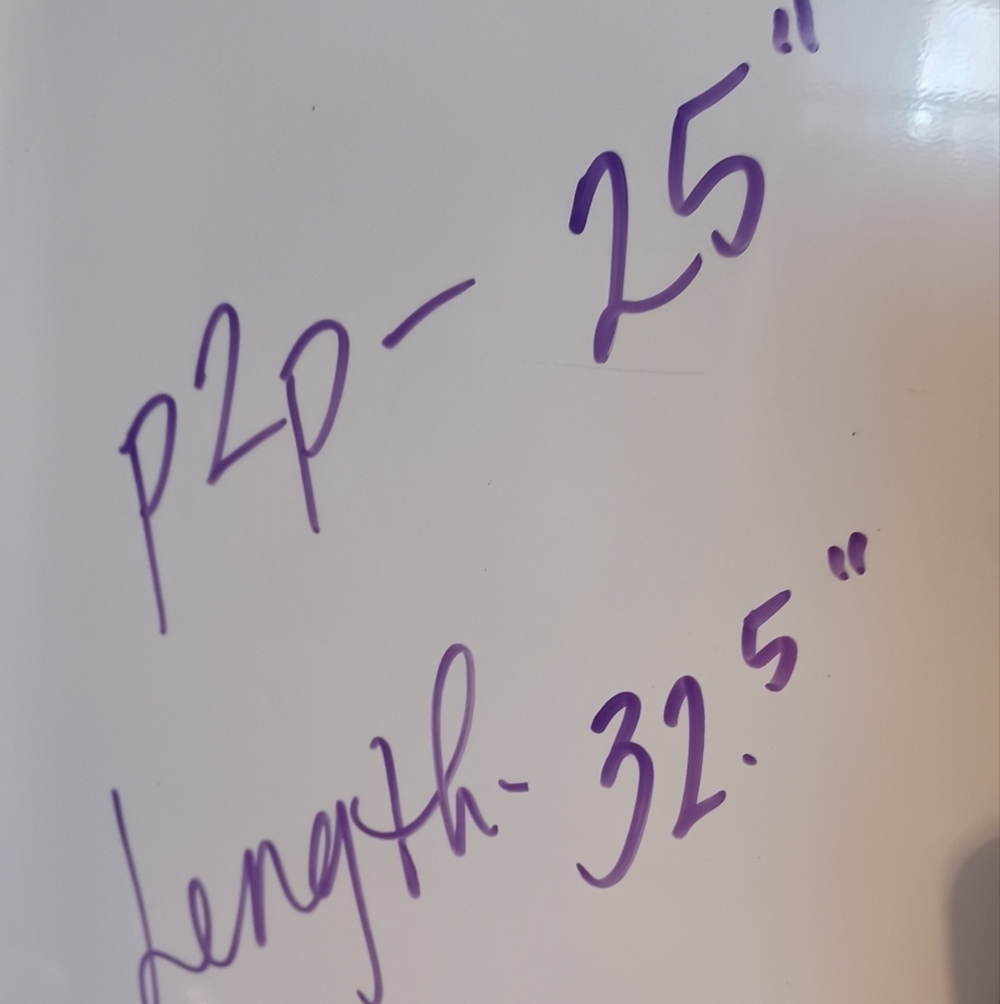 p2p- 25"
Length- 32.5"